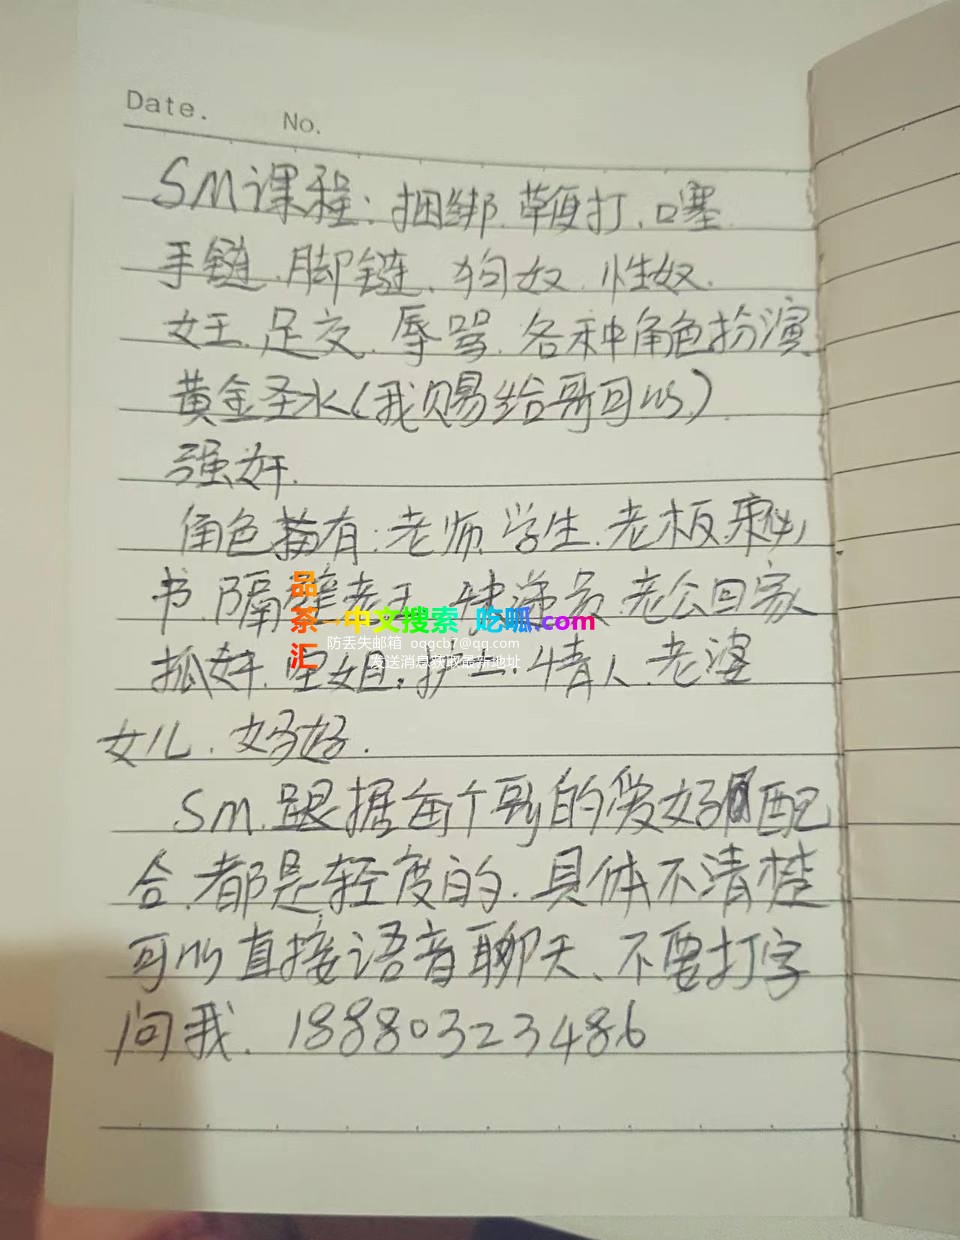 Date.
No.
SM课程：捆绑.鞭打.口塞.
手链.脚链.狗奴.性奴.
女王.足交.辱骂.各种角色扮演
黄金圣水（我赐给哥可以）.
强奸.
角色描有：老师.学生.老板.秘
书.隔壁老王.快递员.老公回家
抓奸.空姐.护士.情人.老婆
女儿.妈妈.
品茶汇
中文搜索 吃呱.com
防丢失邮箱 oqgcb7@qq.com
发送消息获取最新地址
SM.跟据每个哥的爱好配
合.都是轻度的.具体不清楚
可以直接语音聊天、不要打字
问我. 18880323486